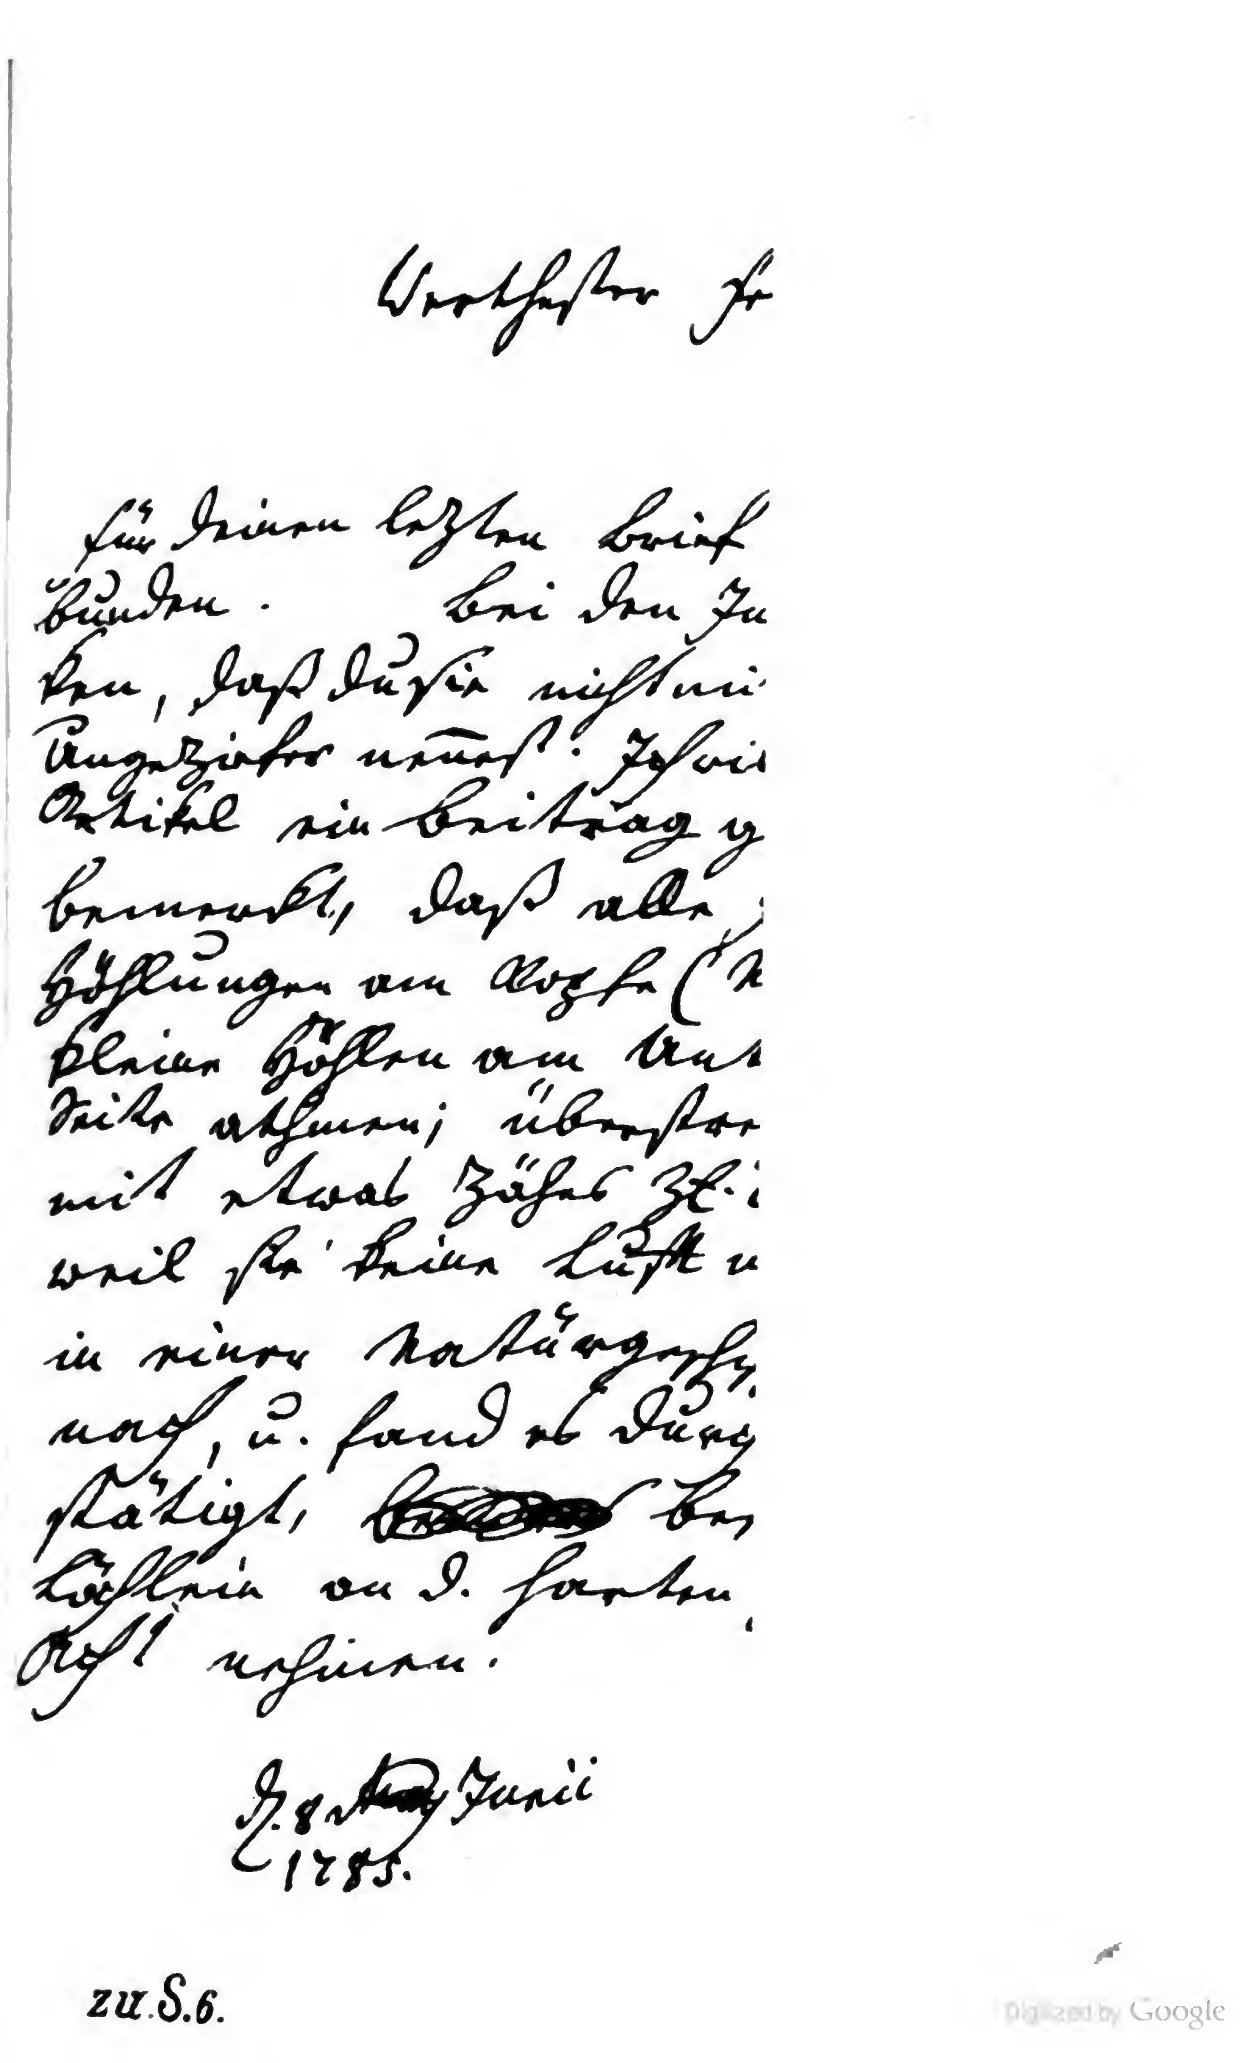 Werthester Fr
für deinen letzten Brief
bunden. Bei den In
ken, daß du sie nicht mi
Ungeziefer nen̅est. Ich wi
Artikel ein Beitrag g
bemerckt, daß alle
Höhlungen am Kopfe (N
kleine Höhlen am Unt
Seite athmen; überstre
mit etwas Zähes
weil sie keine Luft
in einer Natürgesch
nach, u. fand es durch
stätigt, be
Löchlein an d. harten
Acht nehmen.
d. 8 Junii
1785.
zu S. 6.
Digitized by Google